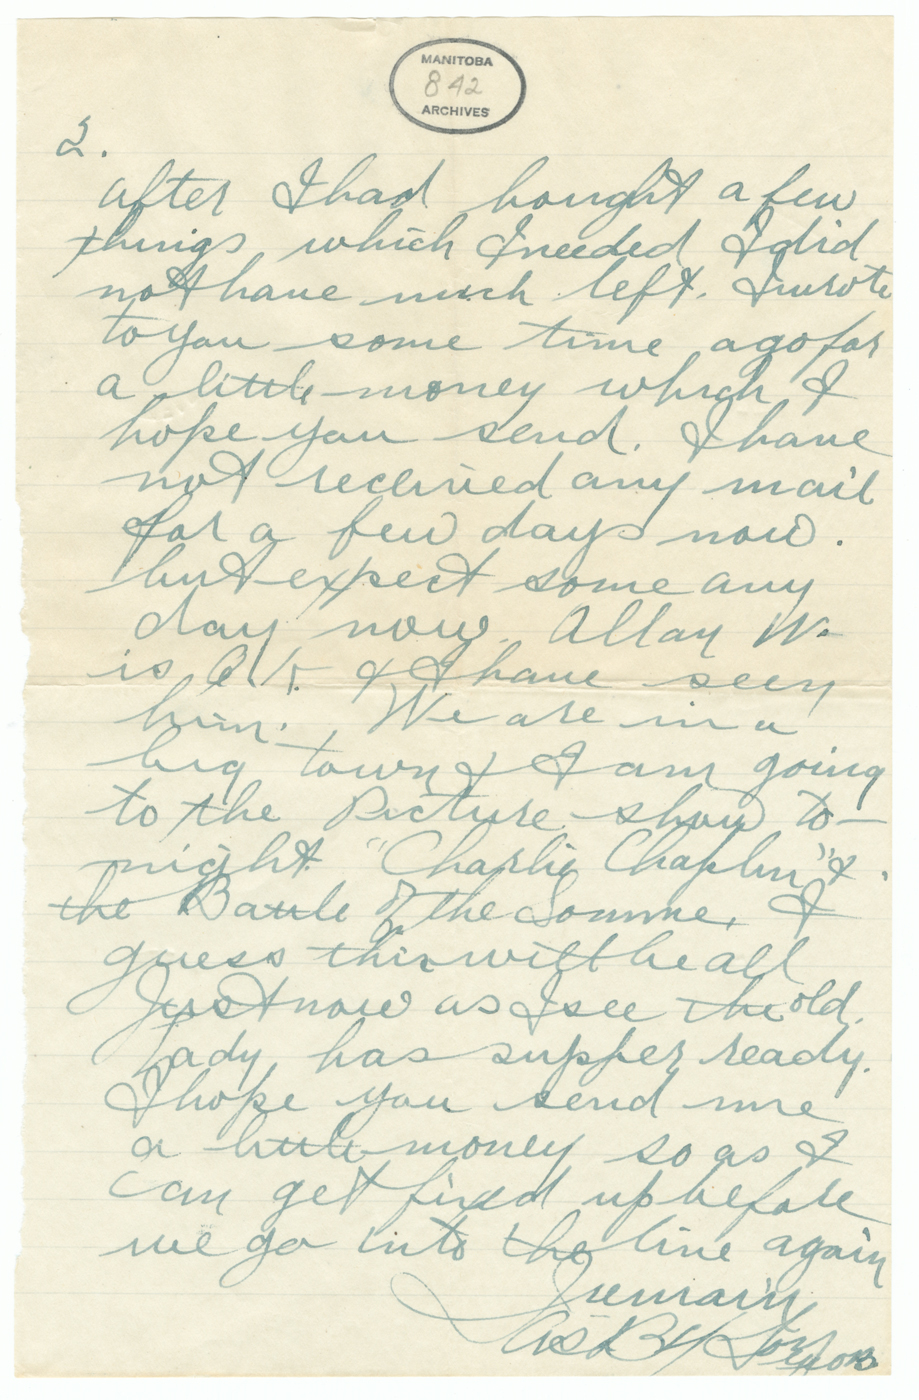 MANITOBA
842
ARCHIVES
2.
after I had bought a few
things which I needed I did
not have much left. I wrote
to you some time ago for
a little money which I
hope you send. I have
not recieved any mail
for a few days now.
but expect some any
day now. Allan W.
is O.K. & I have seen
him. We are in a
big town & I am going
to the Picture show to-
night. "Charlie Chaplin" &
the Battle of the Somme. I
guess this will be all
Just now as I see the old
Lady has supper ready.
I hope you send me
a little money so as I
can get fixed up before
we go into the line again
I remain
As